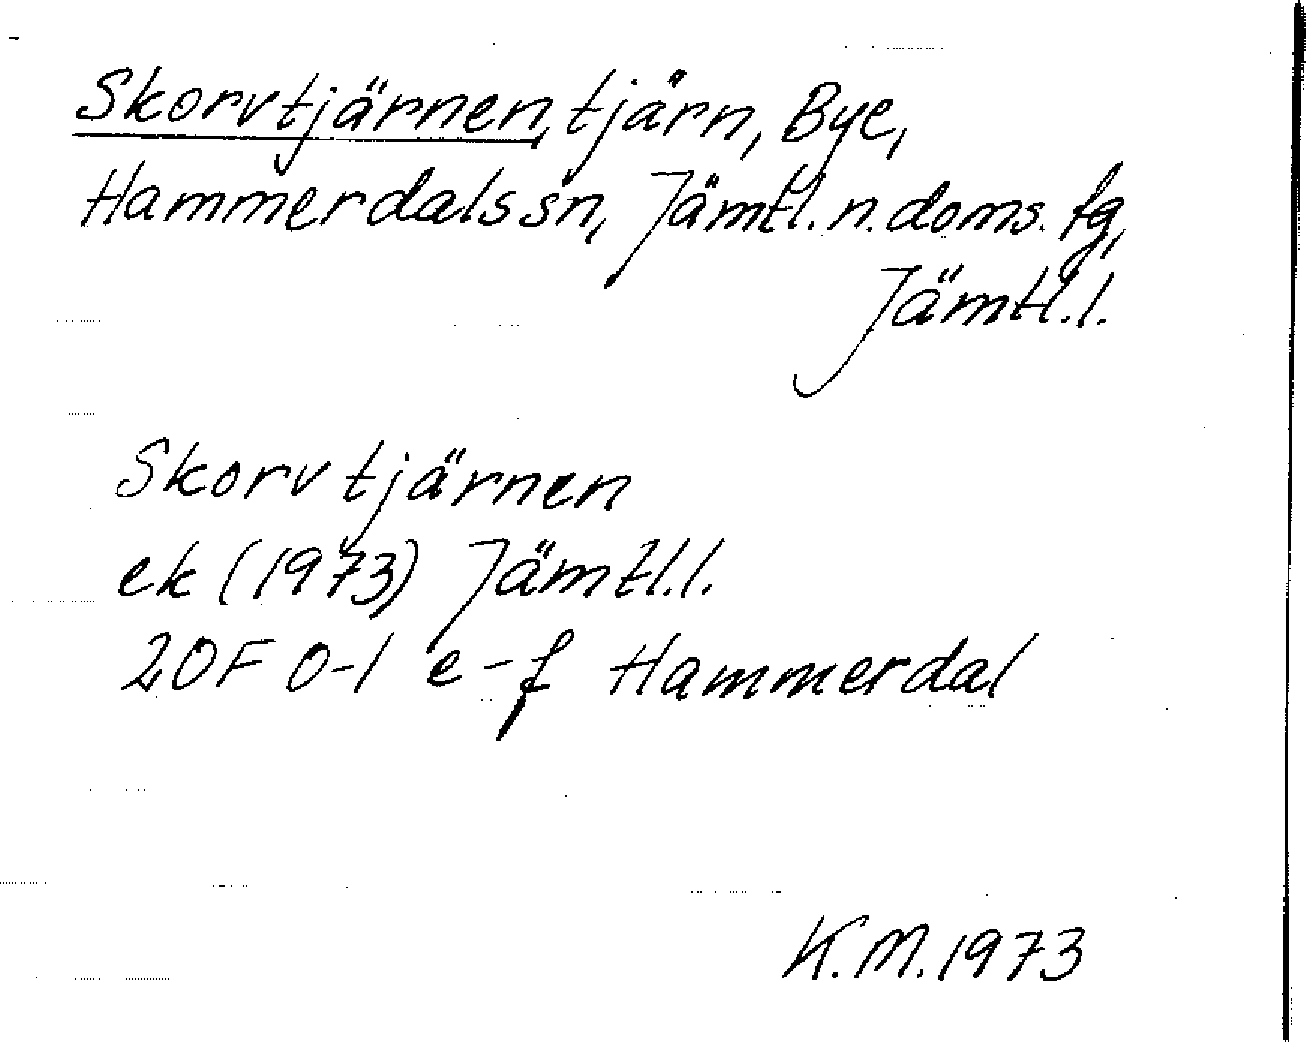 Skorvtjärnen, tjärn, Bye,
Hammerdals sn, Jämtl. n. doms. tg,
Jämtl. l.
Skorvtjärnen
ek (1973) Jämtl. l.
20F 0-1 e-f Hammerdal
K.M. 1973